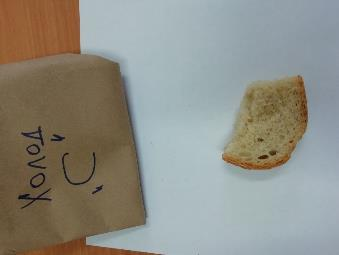 Холод
„С“